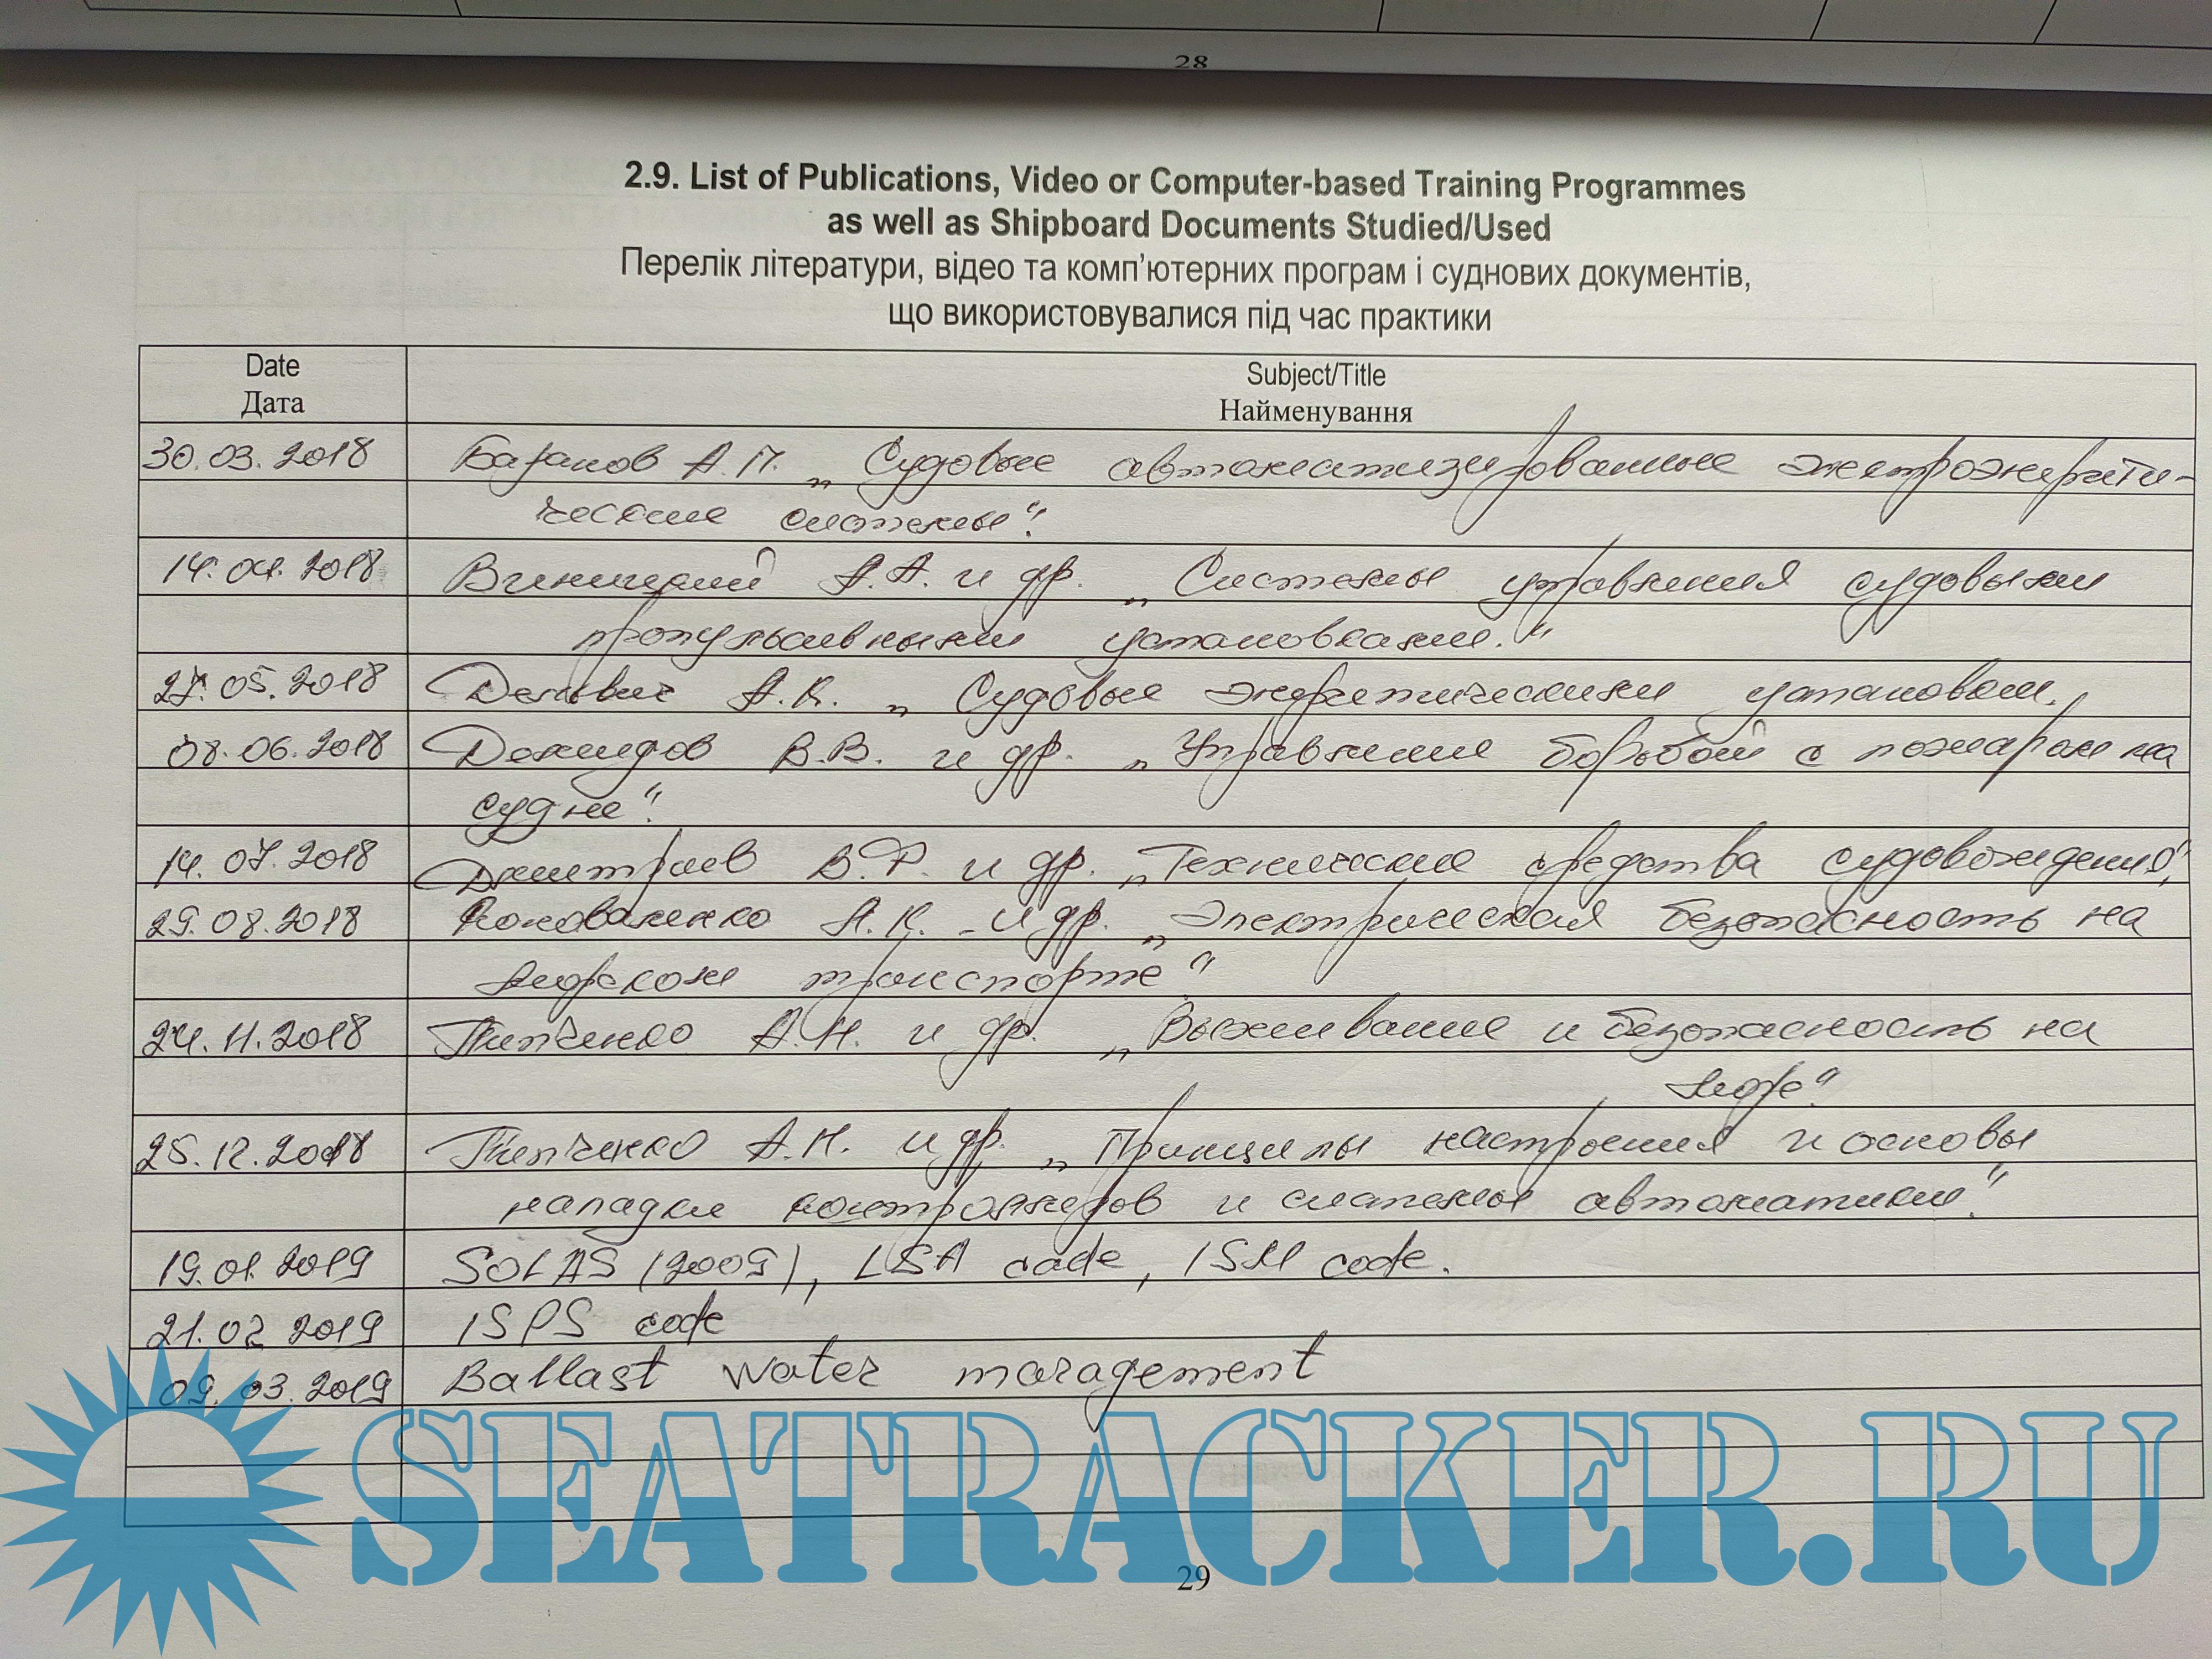 28
2.9. List of Publications, Video or Computer-based Training Programmes
as well as Shipboard Documents Studied/Used
Перелік літератури, відео та комп'ютерних програм і суднових документів,
що використовувалися під час практики
Date Subject/Title
Дата Найменування
30.03.2018 Баранов А.П. „Судовые автоматизированные электроэнергети-
ческие системы".
14.04.2018 А.А. и др. „Системы управления судовыми
пропульсивными установками."
27.05.2018 Дельвиг А.К. „Судовые энергетическими установки.
08.06.2018 Демидов В.В. и др. „Управление борьбой с пожаром на
судне".
14.07.2018 Дмитриев В.Ф. и др. „Технические средства судовождения",
29.08.2018 А.К. и др. „Электрическая безопасность на
морском транспорте".
24.11.2018 А.Н. и др. „Выживание и безопасность на
море".
25.12.2018 А.Н. и др. „Принципы настроения и основы
наладки контроллеров и системы автоматики".
19.01.2019 SOLAS (2009), LSA code, ISM code.
21.02.2019 ISPS code
09.03.2019 Ballast water management
SEATRACKER.RU
29